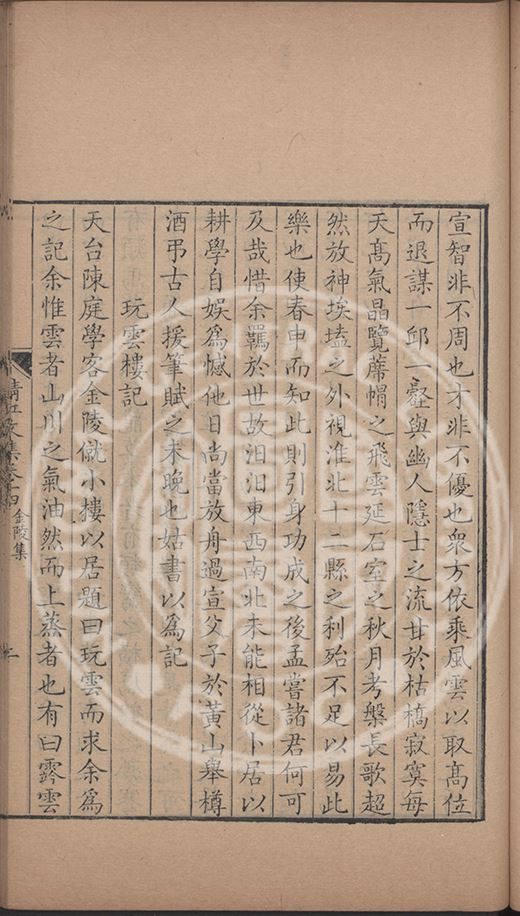 宣智非不周也才非不優也衆方依乘風雲以取髙位
而退謀一邱一壑與幽人隱士之流甘於枯槁寂寞每
天髙氣晶覽蓆帽之飛雲延石室之秋月考槃長歌超
然放神埃𡏖之外視淮北十二縣之利殆不足以易此
樂也使春申而知此則引身功成之後孟嘗諸君何可
及哉惜余羈於世故汨汨東西南北未能相從卜居以
耕學自娛爲憾他日尚當放舟過宣父子於黃山舉樽
酒弔古人援筆賦之未晚也姑書以爲記
玩雲樓記
天台陳庭學客金陵僦小樓以居題曰玩雲而求余爲
之記余惟雲者山川之氣油然而上蒸者也有曰霛雲
清江文集卷十四金陵集